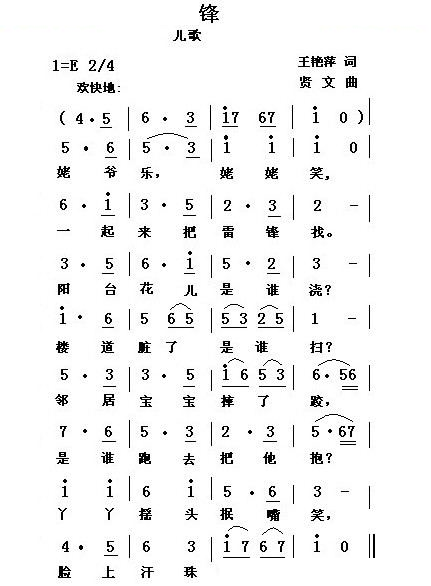 锋
儿歌
1=E 2/4
王艳萍 词
欢快地:
贤 文 曲
( 4 · 5 | 6 · 3 | i7 67 | i 0 )
5 · 6 | 5 · 3 | i i | i 0
姥 爷 乐, 姥 姥 笑,
6 · i | 3 · 5 | 2 · 3 | 2 -
一 起 来 把 雷 锋 找。
3 · 5 | 6 · i | 5 · 2 | 3 -
阳 台 花 儿 是 谁 浇?
i · 6 | 5 6 5 | 5 3 2 5 | 1 -
楼 道 脏 了 是 谁 扫?
5 · 3 | 5 · 3 | i 6 5 3 | 6 · 56
邻 居 宝 宝 摔 了 跤,
7 · 6 | 5 · 3 | 2 · 3 | 5 · 67
是 谁 跑 去 把 他 抱?
i i | 6 i | 5 · 6 | 3 -
丫 丫 摇 头 抿 嘴 笑,
4 · 5 | 6 · 3 | i 7 6 7 | i 0 ‖
脸 上 汗 珠